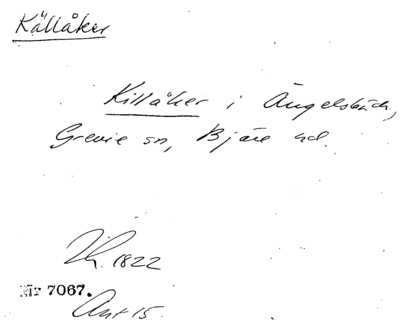 Källåker
Killåker i Ängelsbäck,
Grevie sn, Bjäre hd.
1822
Nr 7067.
Ant 15.